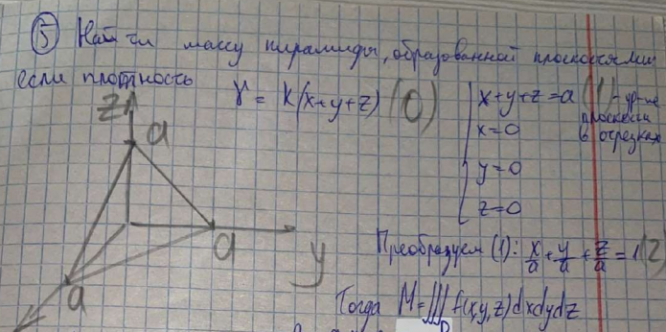 ⑤ Найти массу пирамиды, образованной плоскостями
если плотность γ = k(x+y+z) (0)
{ x+y+z=a (1) - ур-ие
плоскости
в отрезках
x=0
y=0
z=0
z
a
a
y
a
Преобразуем (1): x/a + y/a + z/a = 1 (2)
Тогда M=∭f(x,y,z)dxdydz